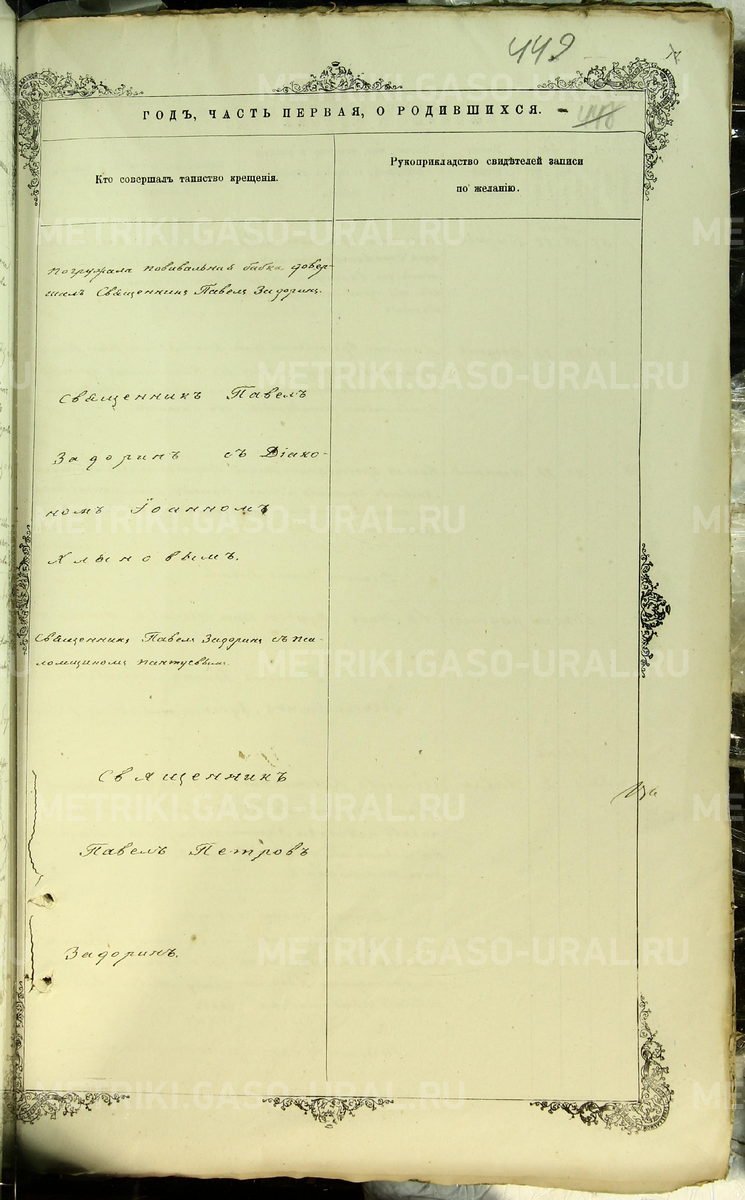 449
ГОДЪ, ЧАСТЬ ПЕРВАЯ, О РОДИВШИХСЯ.
448
Кто совершалъ таинство крещенія.
Рукоприкладство свидѣтелей записи
по желанію.
погружала повивальная бабка довер-
шилъ Священникъ Павелъ Задоринъ.
Священникъ Павелъ
Задоринъ съ Діако-
номъ Іоанномъ
Хлыновымъ.
Священникъ Павелъ Задоринъ съ пса-
ломщикомъ
Священникъ
Павелъ Петровъ
Задоринъ.
METRIKI.GASO-URAL.RU